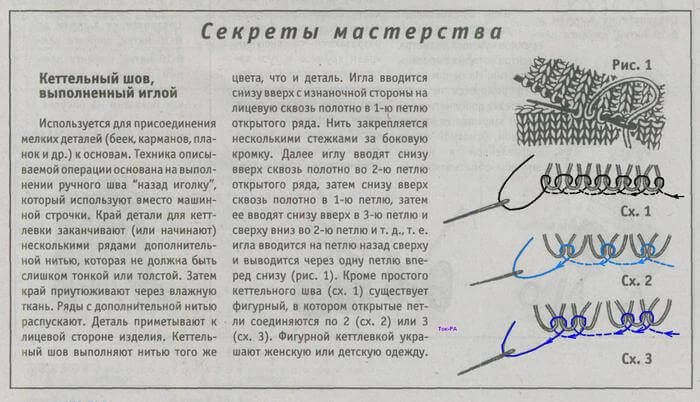 Секреты мастерства
Кеттельный шов,
выполненный иглой
Используется для присоединения
мелких деталей (беек, карманов, пла-
нок и др.) к основам. Техника описы-
ваемой операции основана на выпол-
нении ручного шва "назад иголку",
который используют вместо машин-
ной строчки. Край детали для кетт-
левки заканчивают (или начинают)
несколькими рядами дополнитель-
ной нитью, которая не должна быть
слишком тонкой или толстой. Затем
край приутюживают через влажную
ткань. Ряды с дополнительной нитью
распускают. Деталь приметывают к
лицевой стороне изделия. Кеттель-
ный шов выполняют нитью того же
цвета, что и деталь. Игла вводится
снизу вверх с изнаночной стороны на
лицевую сквозь полотно в 1-ю петлю
открытого ряда. Нить закрепляется
несколькими стежками за боковую
кромку. Далее иглу вводят снизу
вверх сквозь полотно во 2-ю петлю
открытого ряда, затем снизу вверх
сквозь полотно в 1-ю петлю, затем
ее вводят снизу вверх в 3-ю петлю и
сверху вниз во 2-ю петлю и т. д., т. е.
игла вводится на петлю назад сверху
и выводится через одну петлю впе-
ред снизу (рис. 1). Кроме простого
кеттельного шва (сх. 1) существует
фигурный, в котором открытые пет-
ли соединяются по 2 (сх. 2) или 3
(сх. 3). Фигурной кеттлевкой укра-
шают женскую или детскую одежду.
Рис. 1
Сх. 1
Сх. 2
Ток-РА
Сх. 3